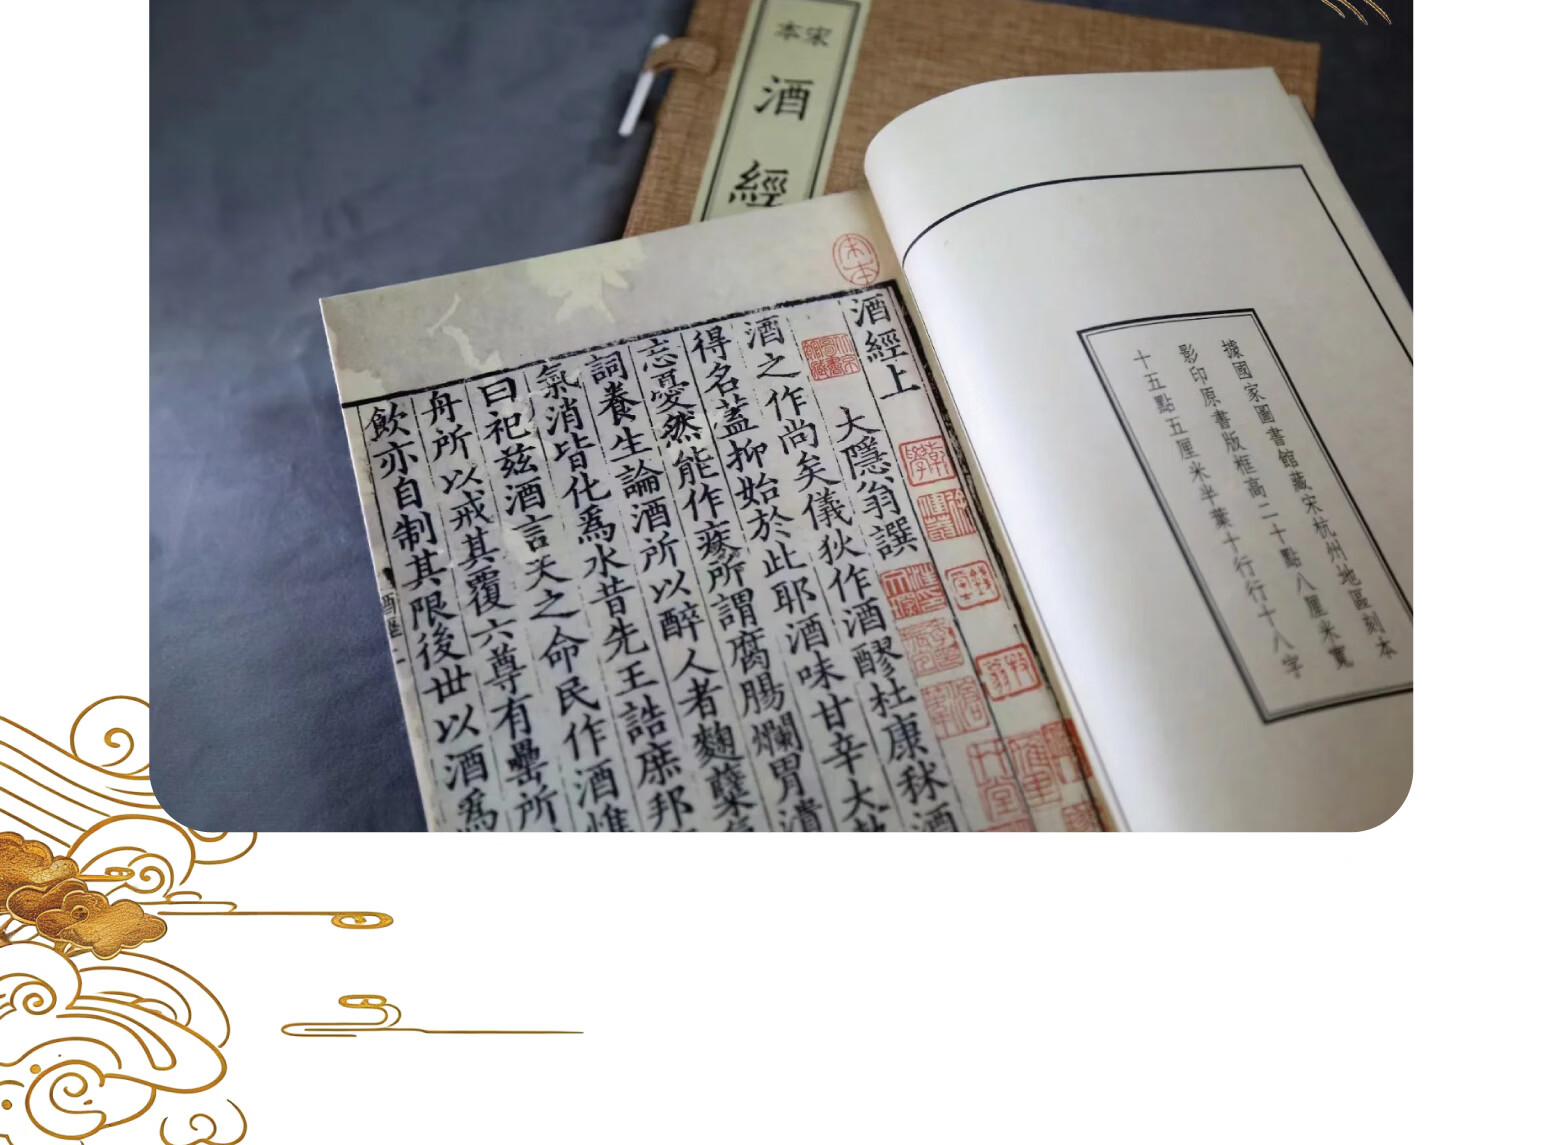 宋本
酒經
據國家圖書館藏宋杭州地區刻本
影印原書版框高二十點八厘米寬
十五點五厘米半葉十行行十八字
宋本
酒經上
大隱翁譔
酒之作尚矣儀狄作酒醪杜康秫酒
得名蓋抑始於此耶酒味甘辛大
忘憂然能作疹所謂腐腸爛胃潰
詞養生論酒所以醉人者麴糵
氣消皆化爲水昔先王誥庶邦
曰祀茲酒言天之命民作酒惟
舟所以戒其覆六尊有罍所
飲亦自制其限後世以酒爲